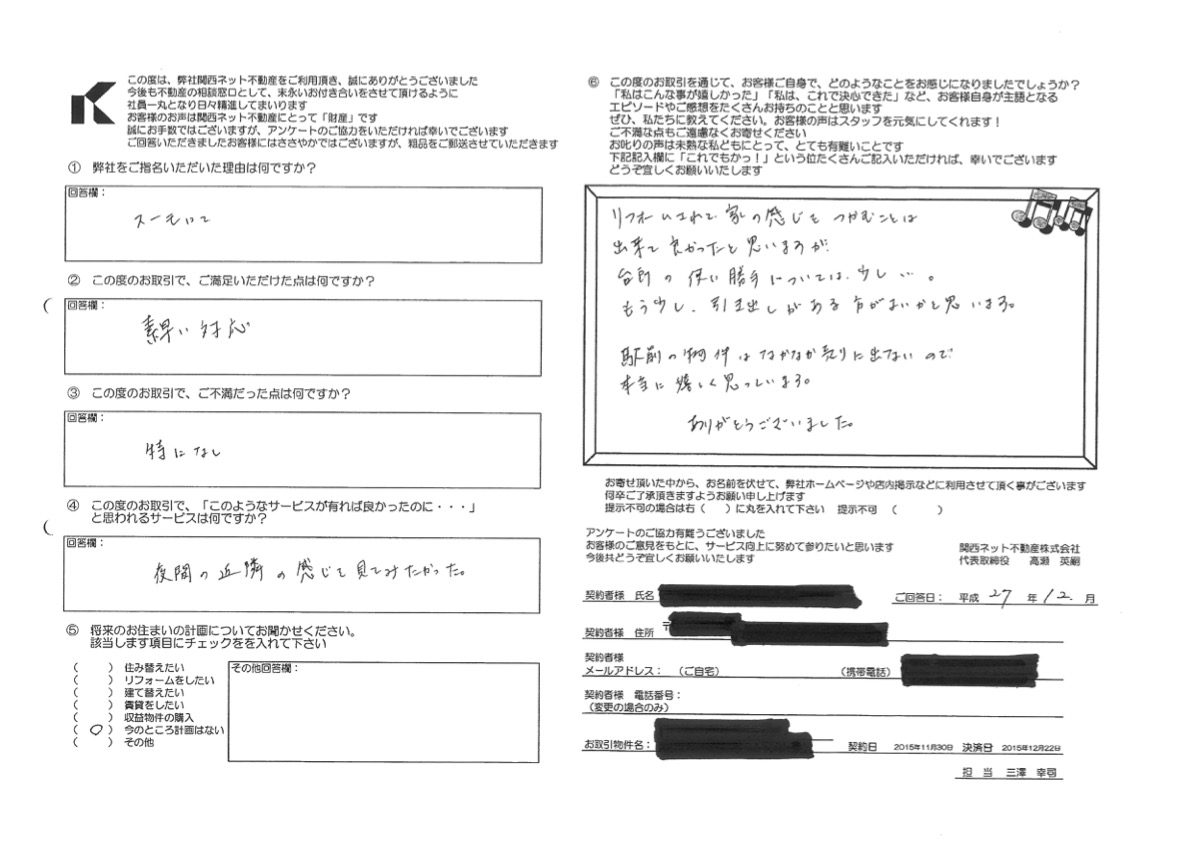 この度は、弊社関西ネット不動産をご利用頂き、誠にありがとうございました
今後も不動産の相談窓口として、末永いお付き合いをさせて頂けるように
社員一丸となり日々精進してまいります
お客様のお声は関西ネット不動産にとって「財産」です
誠にお手数ではございますが、アンケートのご協力をいただければ幸いでございます
ご回答いただきましたお客様にはささやかではございますが、粗品をご郵送させていただきます
① 弊社をご指名いただいた理由は何ですか？
回答欄：
スーモいて
② この度のお取引で、ご満足いただけた点は何ですか？
回答欄：
素早い対応
③ この度のお取引で、ご不満だった点は何ですか？
回答欄：
特になし
④ この度のお取引で、「このようなサービスが有れば良かったのに・・・」
と思われるサービスは何ですか？
回答欄：
夜間の近隣の感じを見てみたかった。
⑤ 将来のお住まいの計画についてお聞かせください。
該当します項目にチェックをを入れて下さい
（　　）住み替えたい
（　　）リフォームをしたい
（　　）建て替えたい
（　　）賃貸をしたい
（　　）収益物件の購入
（ ○ ）今のところ計画はない
（　　）その他
その他回答欄：
⑥ この度のお取引を通じて、お客様ご自身で、どのようなことをお感じになりましたでしょうか？
「私はこんな事が嬉しかった」「私は、これで決心できた」など、お客様自身が主語となる
エピソードやご感想をたくさんお持ちのことと思います
ぜひ、私たちに教えてください。お客様の声はスタッフを元気にしてくれます！
ご不満な点もご遠慮なくお寄せください
お叱りの声は未熟な私どもにとって、とても有難いことです
下記記入欄に「これでもかっ！」という位たくさんご記入いただければ、幸いでございます
どうぞ宜しくお願いいたします
リフォームされて家の感じをつかむことは
出来て良かったと思いますが、
台所の使い勝手については、少し…。
もう少し、引き出しがある方がよいかと思います。
駅前の物件はなかなか売りに出ないので
本当に嬉しく思っています。
ありがとうございました。
お寄せ頂いた中から、お名前を伏せて、弊社ホームページや店内掲示などに利用させて頂く事がございます
何卒ご了承頂きますようお願い申し上げます
提示不可の場合は右（　　）に丸を入れて下さい　提示不可　（　　　）
アンケートのご協力有難うございました
お客様のご意見をもとに、サービス向上に努めて参りたいと思います
今後共どうぞ宜しくお願いいたします
関西ネット不動産株式会社
代表取締役　高瀬　英嗣
契約者様　氏名
ご回答日：　平成 27 年 12 月
契約者様　住所 〒
契約者様
メールアドレス：　（ご自宅）　（携帯電話）
契約者様　電話番号：
（変更の場合のみ）
お取引物件名：　契約日　2015年11月30日　決済日　2015年12月22日
担　当　三澤　幸司